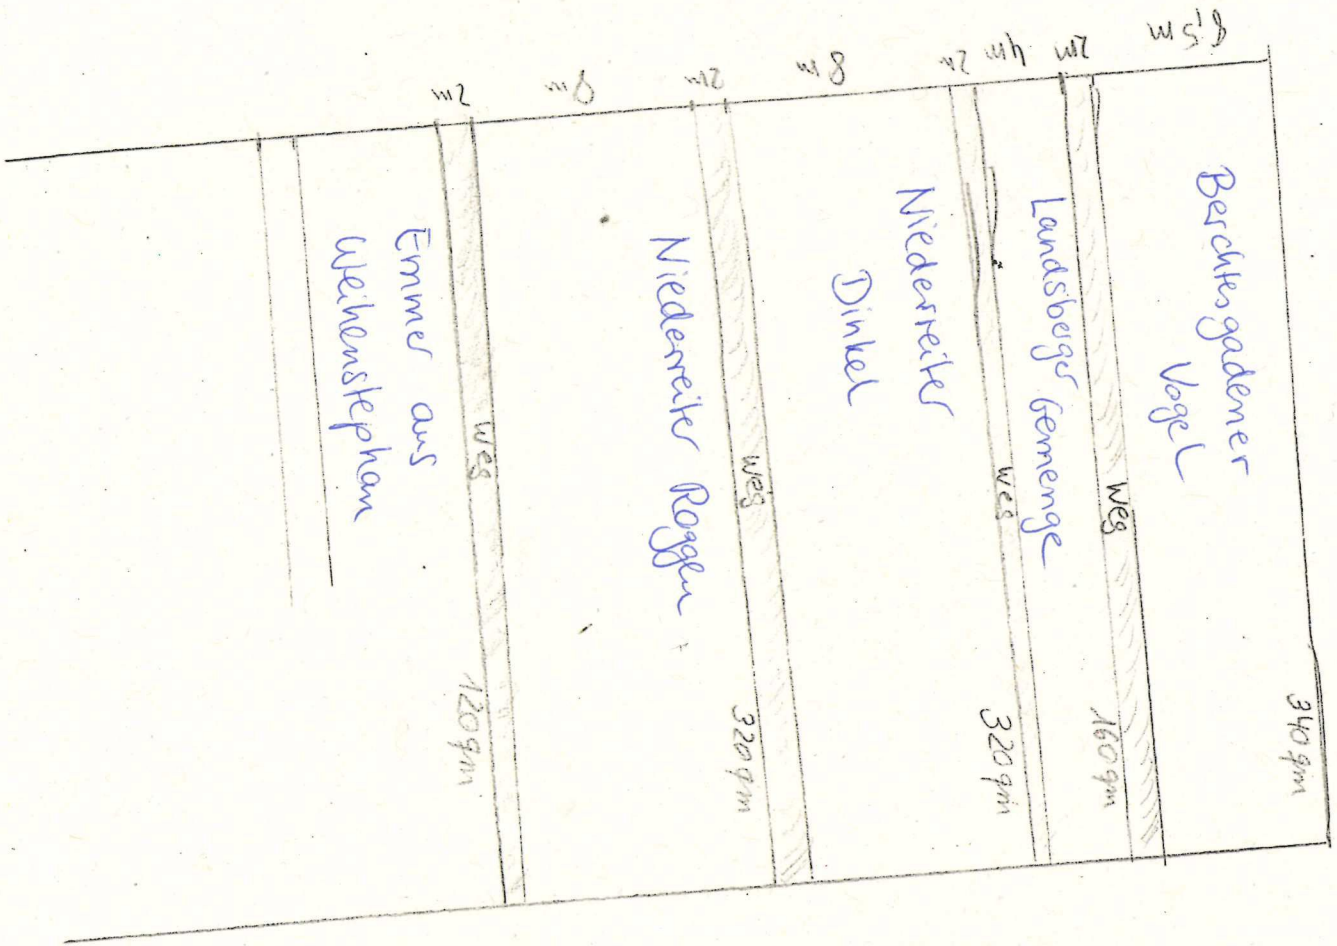 8,5m
2m
4m
2m
8m
2m
8m
2m
Berchtesgadener
Vogel
340qm
Weg
Landsberger Gemenge
160qm
Weg
Niederreiter
Dinkel
320qm
Weg
Niederreiter Roggen
320qm
Weg
Emmer aus
Weihenstephan
120qm